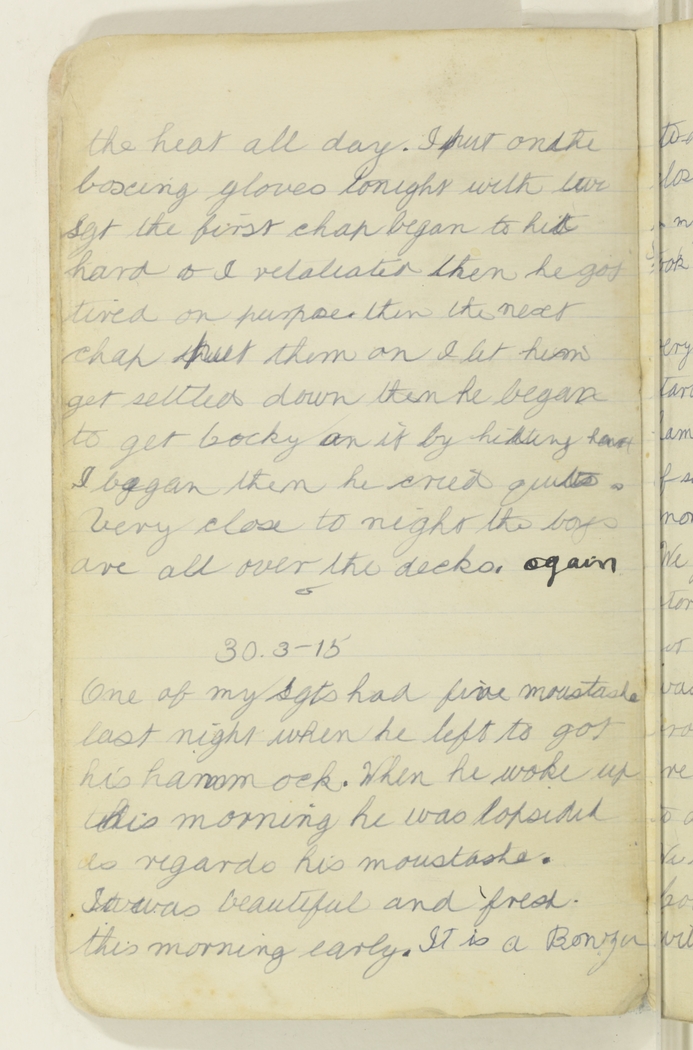 the heat all day. I put on the
boxing gloves tonight with two
Sgt the first chap began to hit
hard so I retaliated then he got
tired on purpose. then the next
chap put them on I let him
get settled down then he began
to get cocky on it by hitting hard
I began then he cried quits.
Very close to night the boys
are all over the decks. again
30.3-15
One of my Sgts had fine moustashe
last night when he left to got
his hammock. When he woke up
this morning he was lopsided
as regards his moustashe.
It was beautiful and fresh.
this morning early. It is a Bonzer